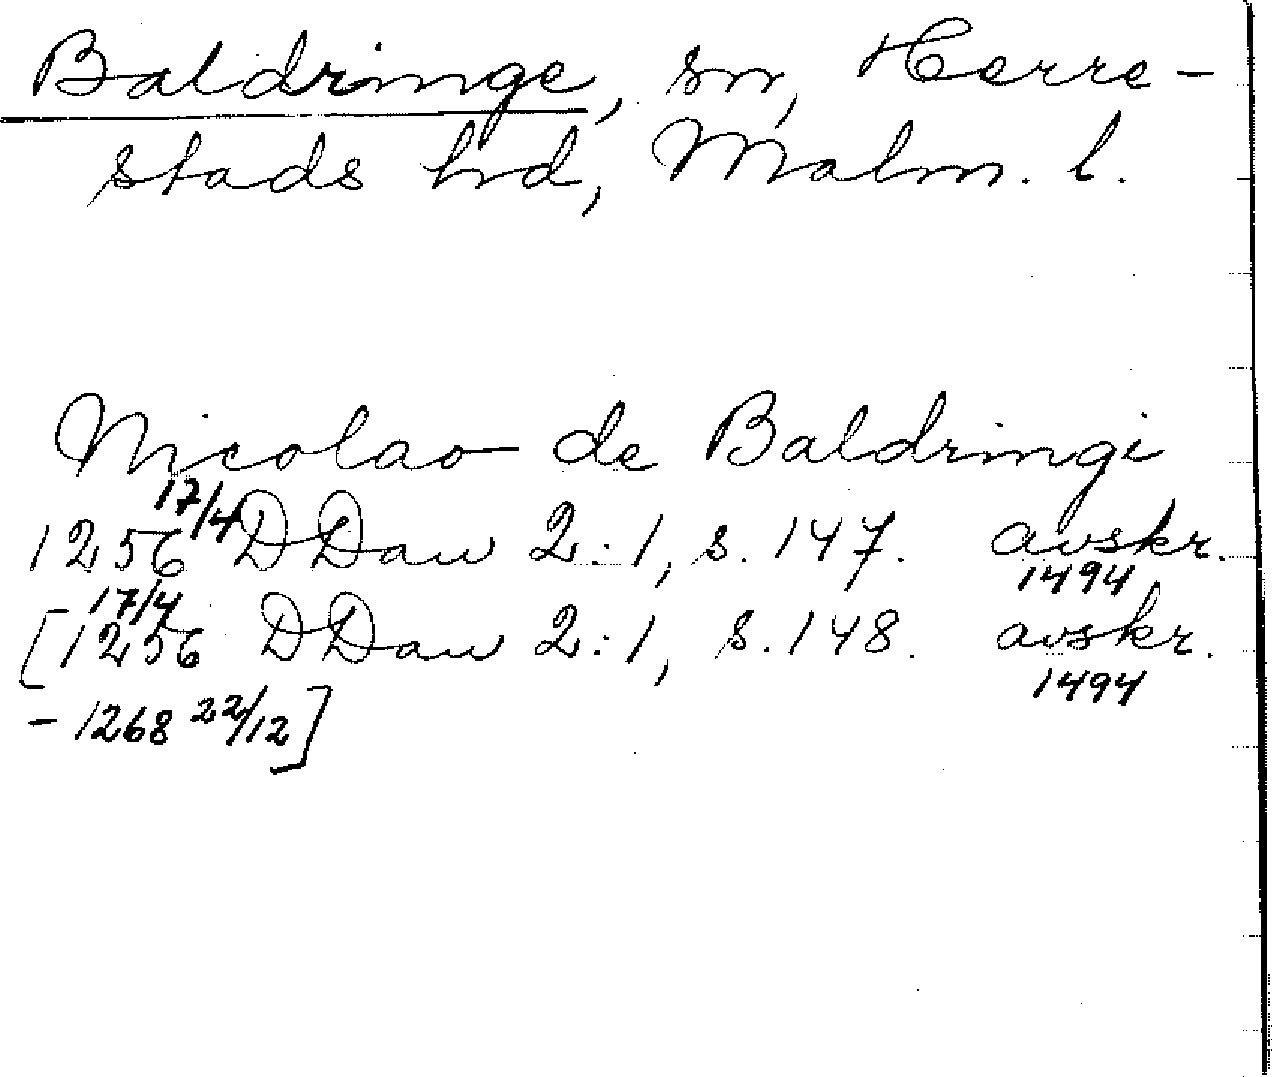 Baldringe, sn, Herre-
stads hd, Malm. l.
Nicolao de Baldringi
1256 17/4 DDan 2:1, s. 147. avskr. 1494
[1256 17/4 DDan 2:1, s. 148. avskr. 1494
- 1268 22/12]